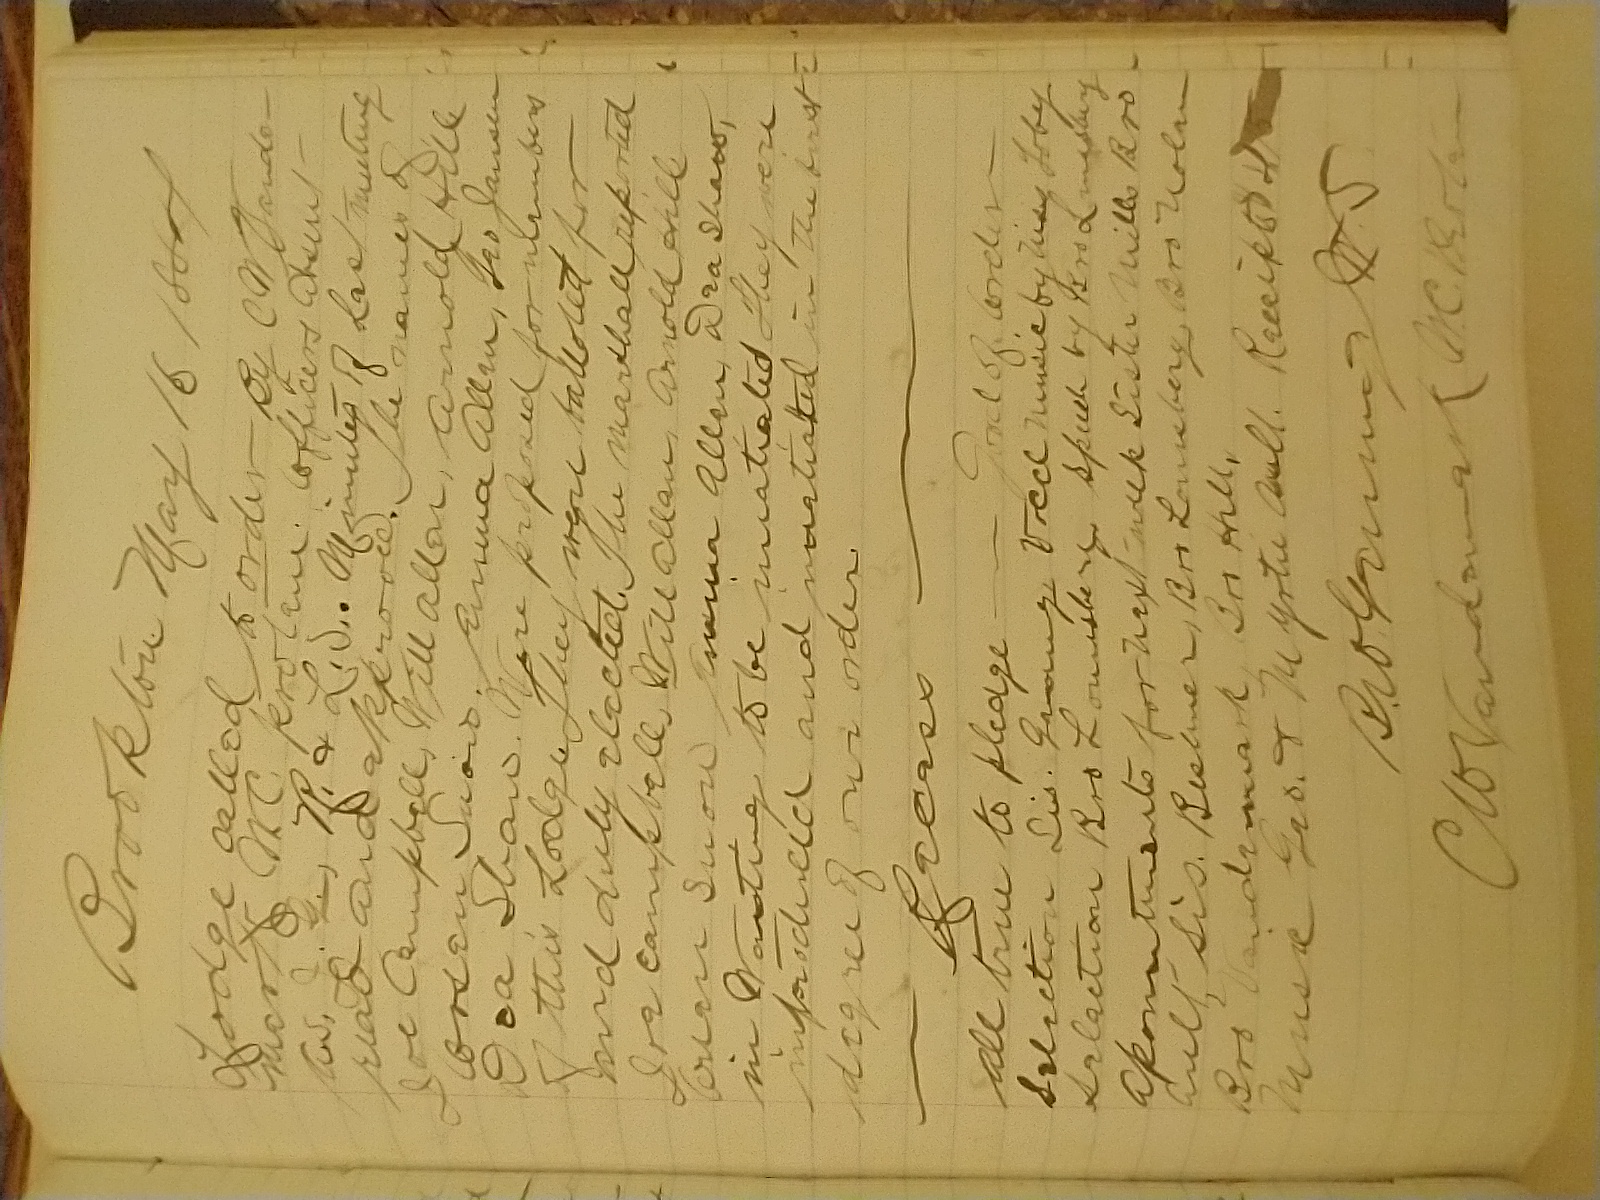 Brookton May 16 1884
Lodge called to order By C W Vande-
mark W.C. protem. Officers absent
J. G., R. & L. S.. Minutes of last meeting
read and approved. The names of
Joe Campbell, Will Allan, Arnold Hill
Orsen Snow. Emma Allan, Geo Jansen
Dra Shaw. Were proposed for members
of this Lodge, They were balloted for
and duly elected. The marshall reported
Joe Campbell, Will Allan, Arnold Hill
Orsen Snow Emma Allan, Dra Shaw,
in Waiting to be inatiated They were
introduced and inatiated in the first
degree of our order.
Recess
all true to pledge — Good of order
Selection Sis. Genung, Vocal Music by Miss Toby
Selection Bro Lounsbery, Speech by Bro Lounsbery
Apointments for next week Sister Mills Bro
Ault, Sis. Beshner, Bro Lounsbery, Bro Nolan
Bro Vandemark, Bro Hill,
Music Geo. & Myrtie Ault. Receipts
Bro Genung W.S.
C W Vandemark W.C. Protem